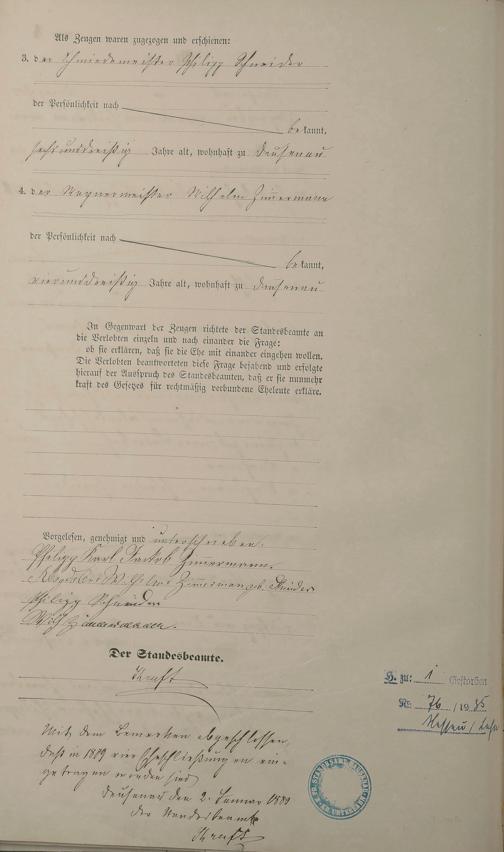 Als Zeugen waren zugezogen und erschienen:
3. der Schmiedemeister Philipp Schneider
der Persönlichkeit nach
bekannt,
sechsunddreißig Jahre alt, wohnhaft zu Dausenau
4. der Wagnermeister Wilhelm Zimmermann
der Persönlichkeit nach
bekannt,
vierunddreißig Jahre alt, wohnhaft zu Dausenau
In Gegenwart der Zeugen richtete der Standesbeamte an
die Verlobten einzeln und nach einander die Frage:
ob sie erklären, daß sie die Ehe mit einander eingehen wollen.
Die Verlobten beantworteten diese Frage bejahend und erfolgte
hierauf der Ausspruch des Standesbeamten, daß er sie nunmehr
kraft des Gesetzes für rechtmäßig verbundene Eheleute erkläre.
Vorgelesen, genehmigt und unterschrieben.
Philipp Karl Jakob Zimmermann
Zimmermann geb.
Philipp Schneider
Wilh Zimmermann.
Der Standesbeamte.
Kraft
Mit dem Bemerken abgeschlossen,
daß in 1889 vier Eheschließungen ein-
getragen worden sind
Dausenau den 2. Januar
der Standesbeamte
Kraft
H. zu: 1 Gestorben
Nr. 76 /1935
Nassau / Lahn